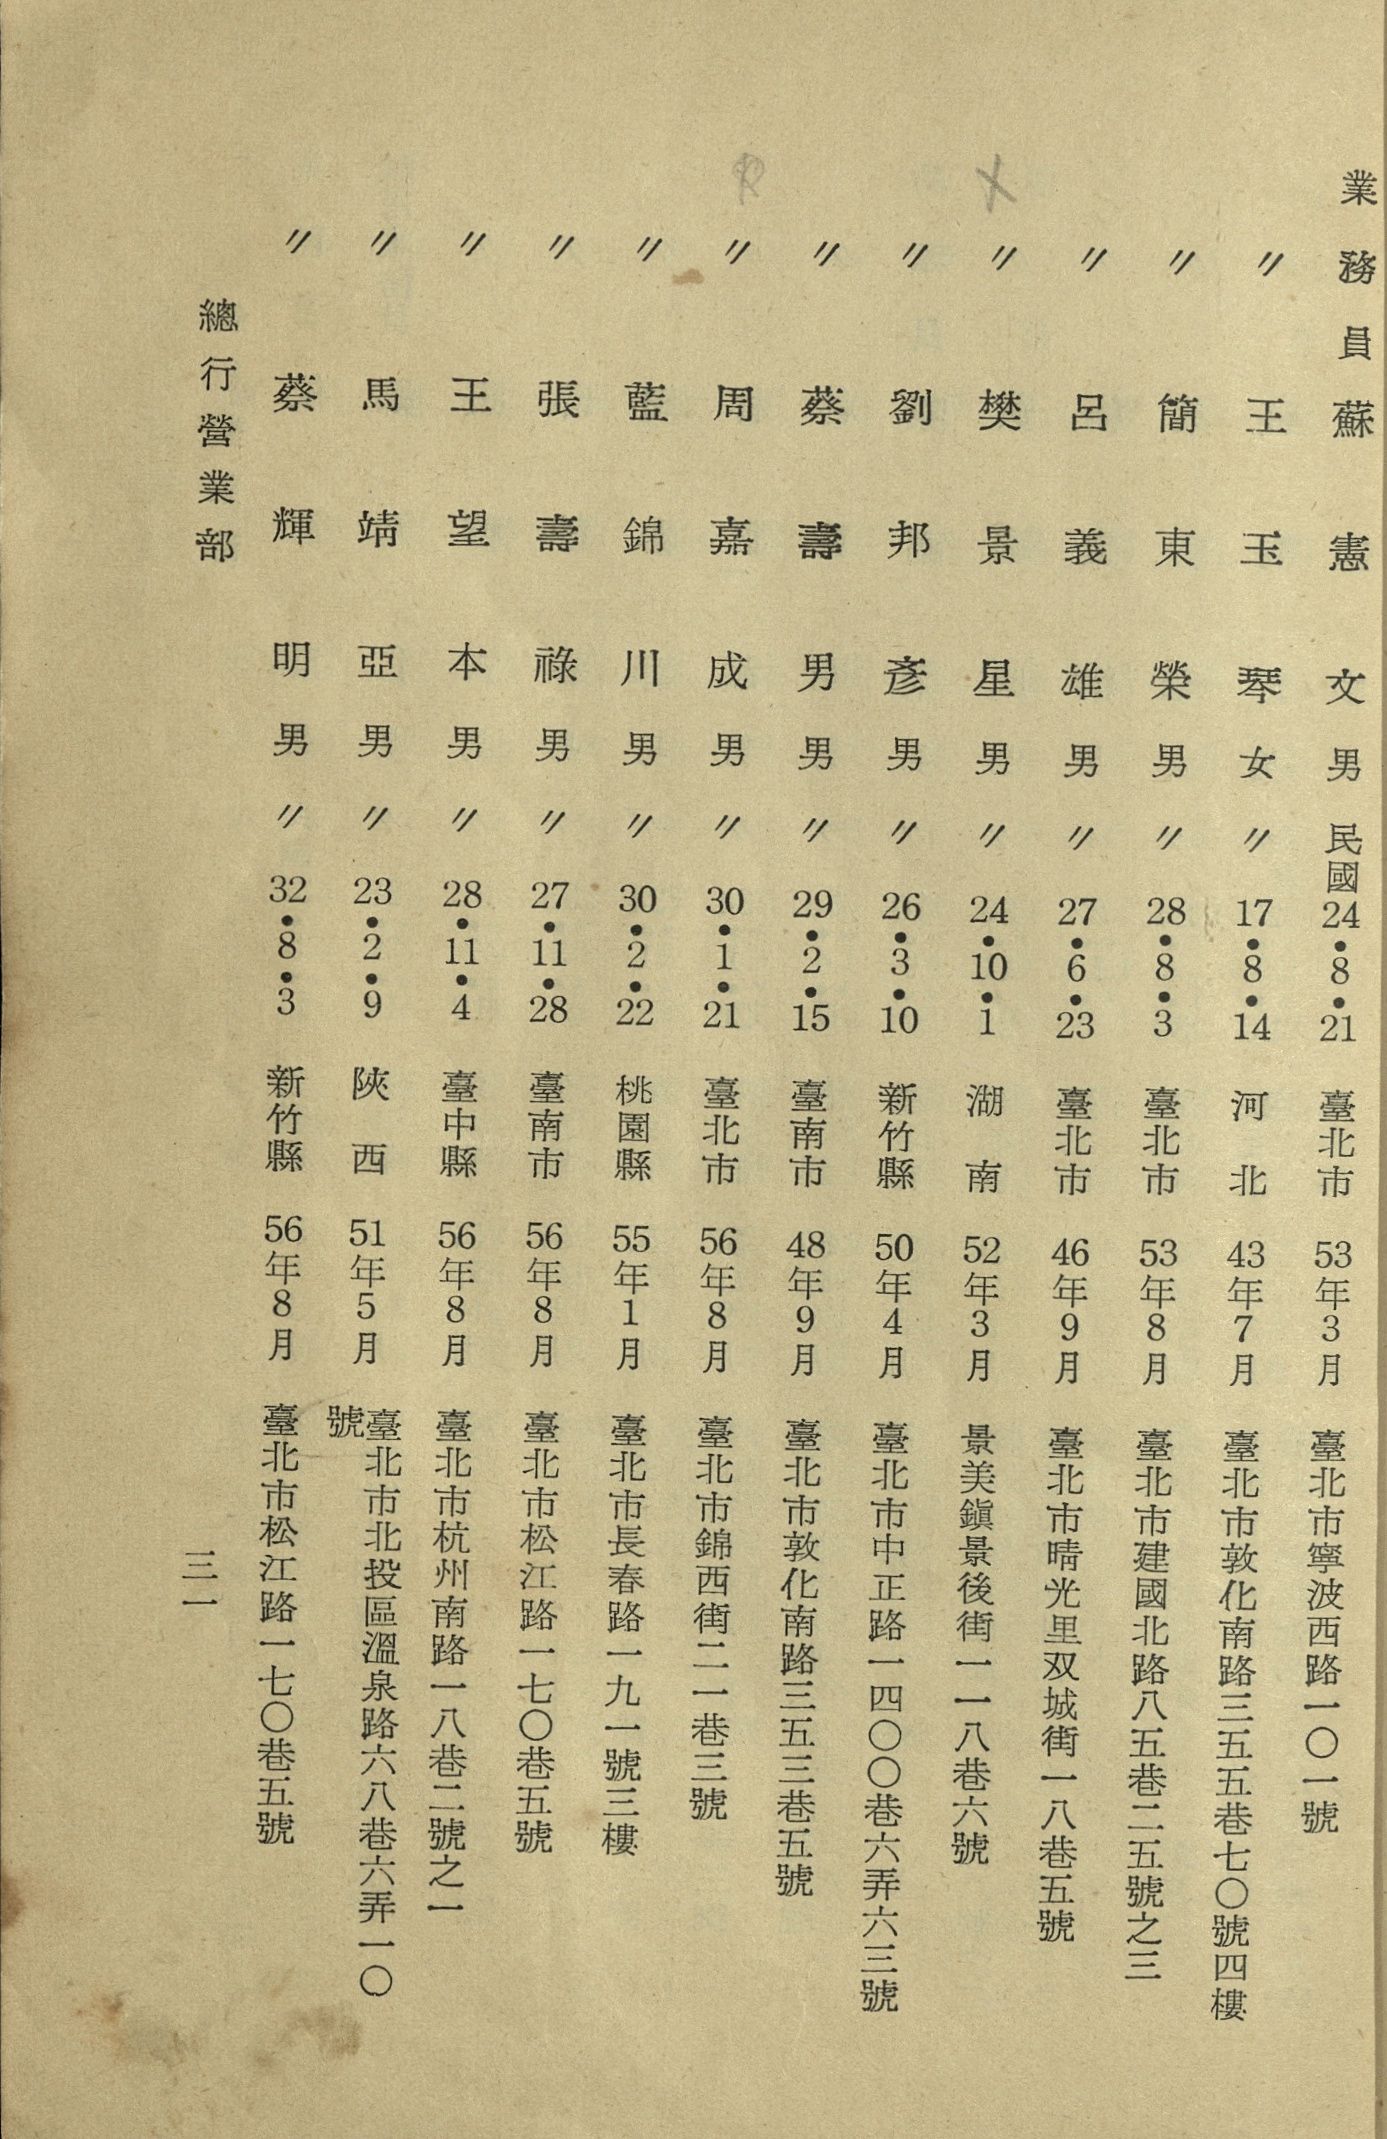 業務員 蘇憲文 男 民國24•8•21 臺北市 53年3月 臺北市寧波西路一〇一號
〃 王玉琴 女 〃 17•8•14 河北 43年7月 臺北市敦化南路三五五巷七〇號四樓
〃 簡東榮 男 〃 28•8•3 臺北市 53年8月 臺北市建國北路八五巷二五號之三
〃 呂義雄 男 〃 27•6•23 臺北市 46年9月 臺北市晴光里双城街一八巷五號
〃 樊景星 男 〃 24•10•1 湖南 52年3月 景美鎭景後街一一八巷六號
〃 劉邦彥 男 〃 26•3•10 新竹縣 50年4月 臺北市中正路一四〇〇巷六弄六三號
〃 蔡壽男 男 〃 29•2•15 臺南市 48年9月 臺北市敦化南路三五三巷五號
〃 周嘉成 男 〃 30•1•21 臺北市 56年8月 臺北市錦西街二一巷三號
〃 藍錦川 男 〃 30•2•22 桃園縣 55年1月 臺北市長春路一九一號三樓
〃 張壽祿 男 〃 27•11•28 臺南市 56年8月 臺北市松江路一七〇巷五號
〃 王望本 男 〃 28•11•4 臺中縣 56年8月 臺北市杭州南路一八巷二號之一
〃 馬靖亞 男 〃 23•2•9 陝西 51年5月 臺北市北投區溫泉路六八巷六弄一〇
號
〃 蔡輝明 男 〃 32•8•3 新竹縣 56年8月 臺北市松江路一七〇巷五號
總行營業部
三一